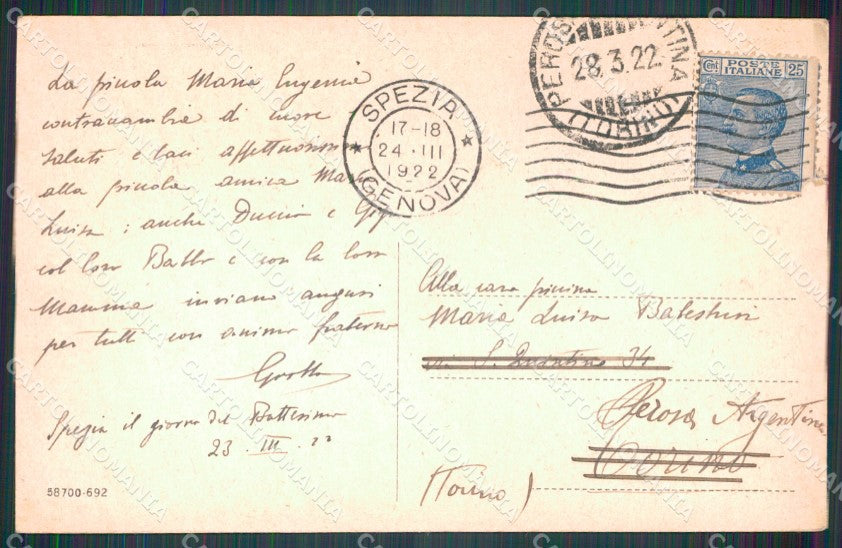 La piccola Maria Eugenia
contraccambia di cuore
saluti e baci affettuosissimi
alla piccola amica Maria
Luisa; anche Duccio e
col loro Babbo e con la loro
Mamma inviano auguri
per tutti con animo fraterno
Spezia il giorno del Battesimo
23 · III · 22
58700-692
SPEZIA
17-18
24 · III
1922
(GENOVA)
PEROSA ARGENTINA
28.3.22
(TORINO)
Cent POSTE ITALIANE 25
Alla cara piccina
Maria Luisa
via S. Quintino 34
Perosa Argentina
Torino
(Torino)
CARTOLINOMANIA